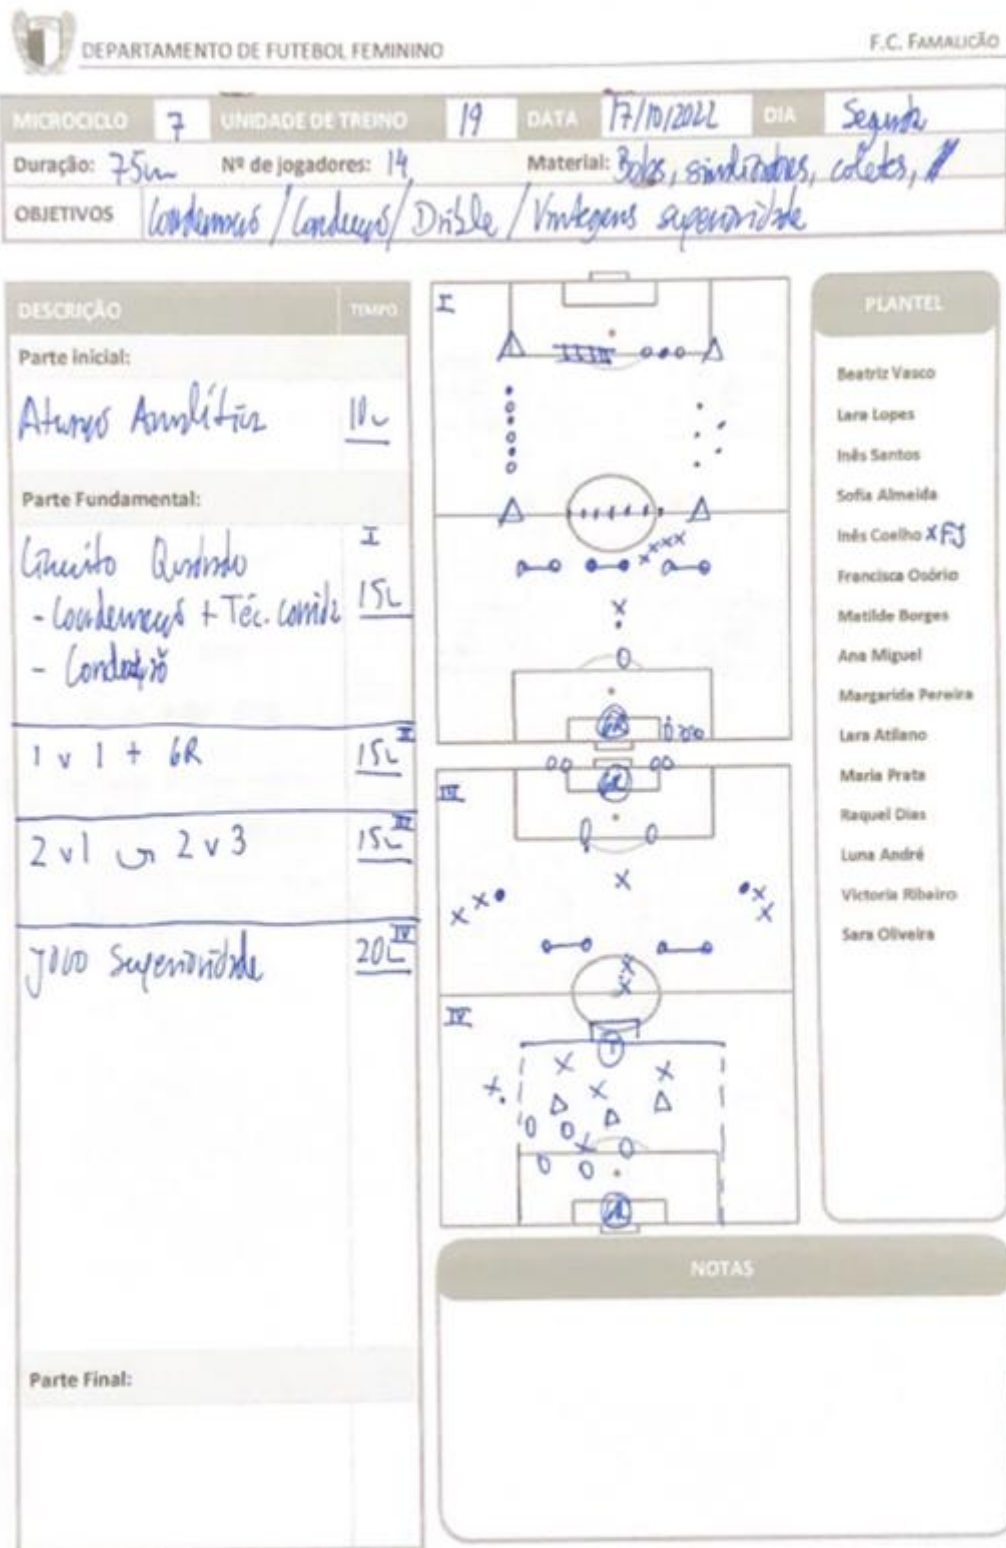 DEPARTAMENTO DE FUTEBOL FEMININO
F.C. FAMALICÃO
MICROCICLO 7 UNIDADE DE TREINO 19 DATA 17/10/2022 DIA Segunda
Duração: 75m Nº de jogadores: 14 Material: Bolas, sinalizadores, coletes,
OBJETIVOS Coordenação / Condução / Drible / Vantagens superioridade
DESCRIÇÃO TEMPO
Parte inicial:
Analítica 10
Parte Fundamental:
Circuito Quadrado I
- Coordenação + Téc. corrida 15
- Condução
1 v 1 + GR 15 II
2 v 1 2 v 3 15 III
Jogo Superioridade 20 IV
Parte Final:
I
GR
III
GR
IV
PLANTEL
Beatriz Vasco
Lara Lopes
Inês Santos
Sofia Almeida
Inês Coelho X FJ
Francisca Osório
Matilde Borges
Ana Miguel
Margarida Pereira
Lara Atilano
Maria Prata
Raquel Dias
Luna André
Victoria Ribeiro
Sara Oliveira
NOTAS